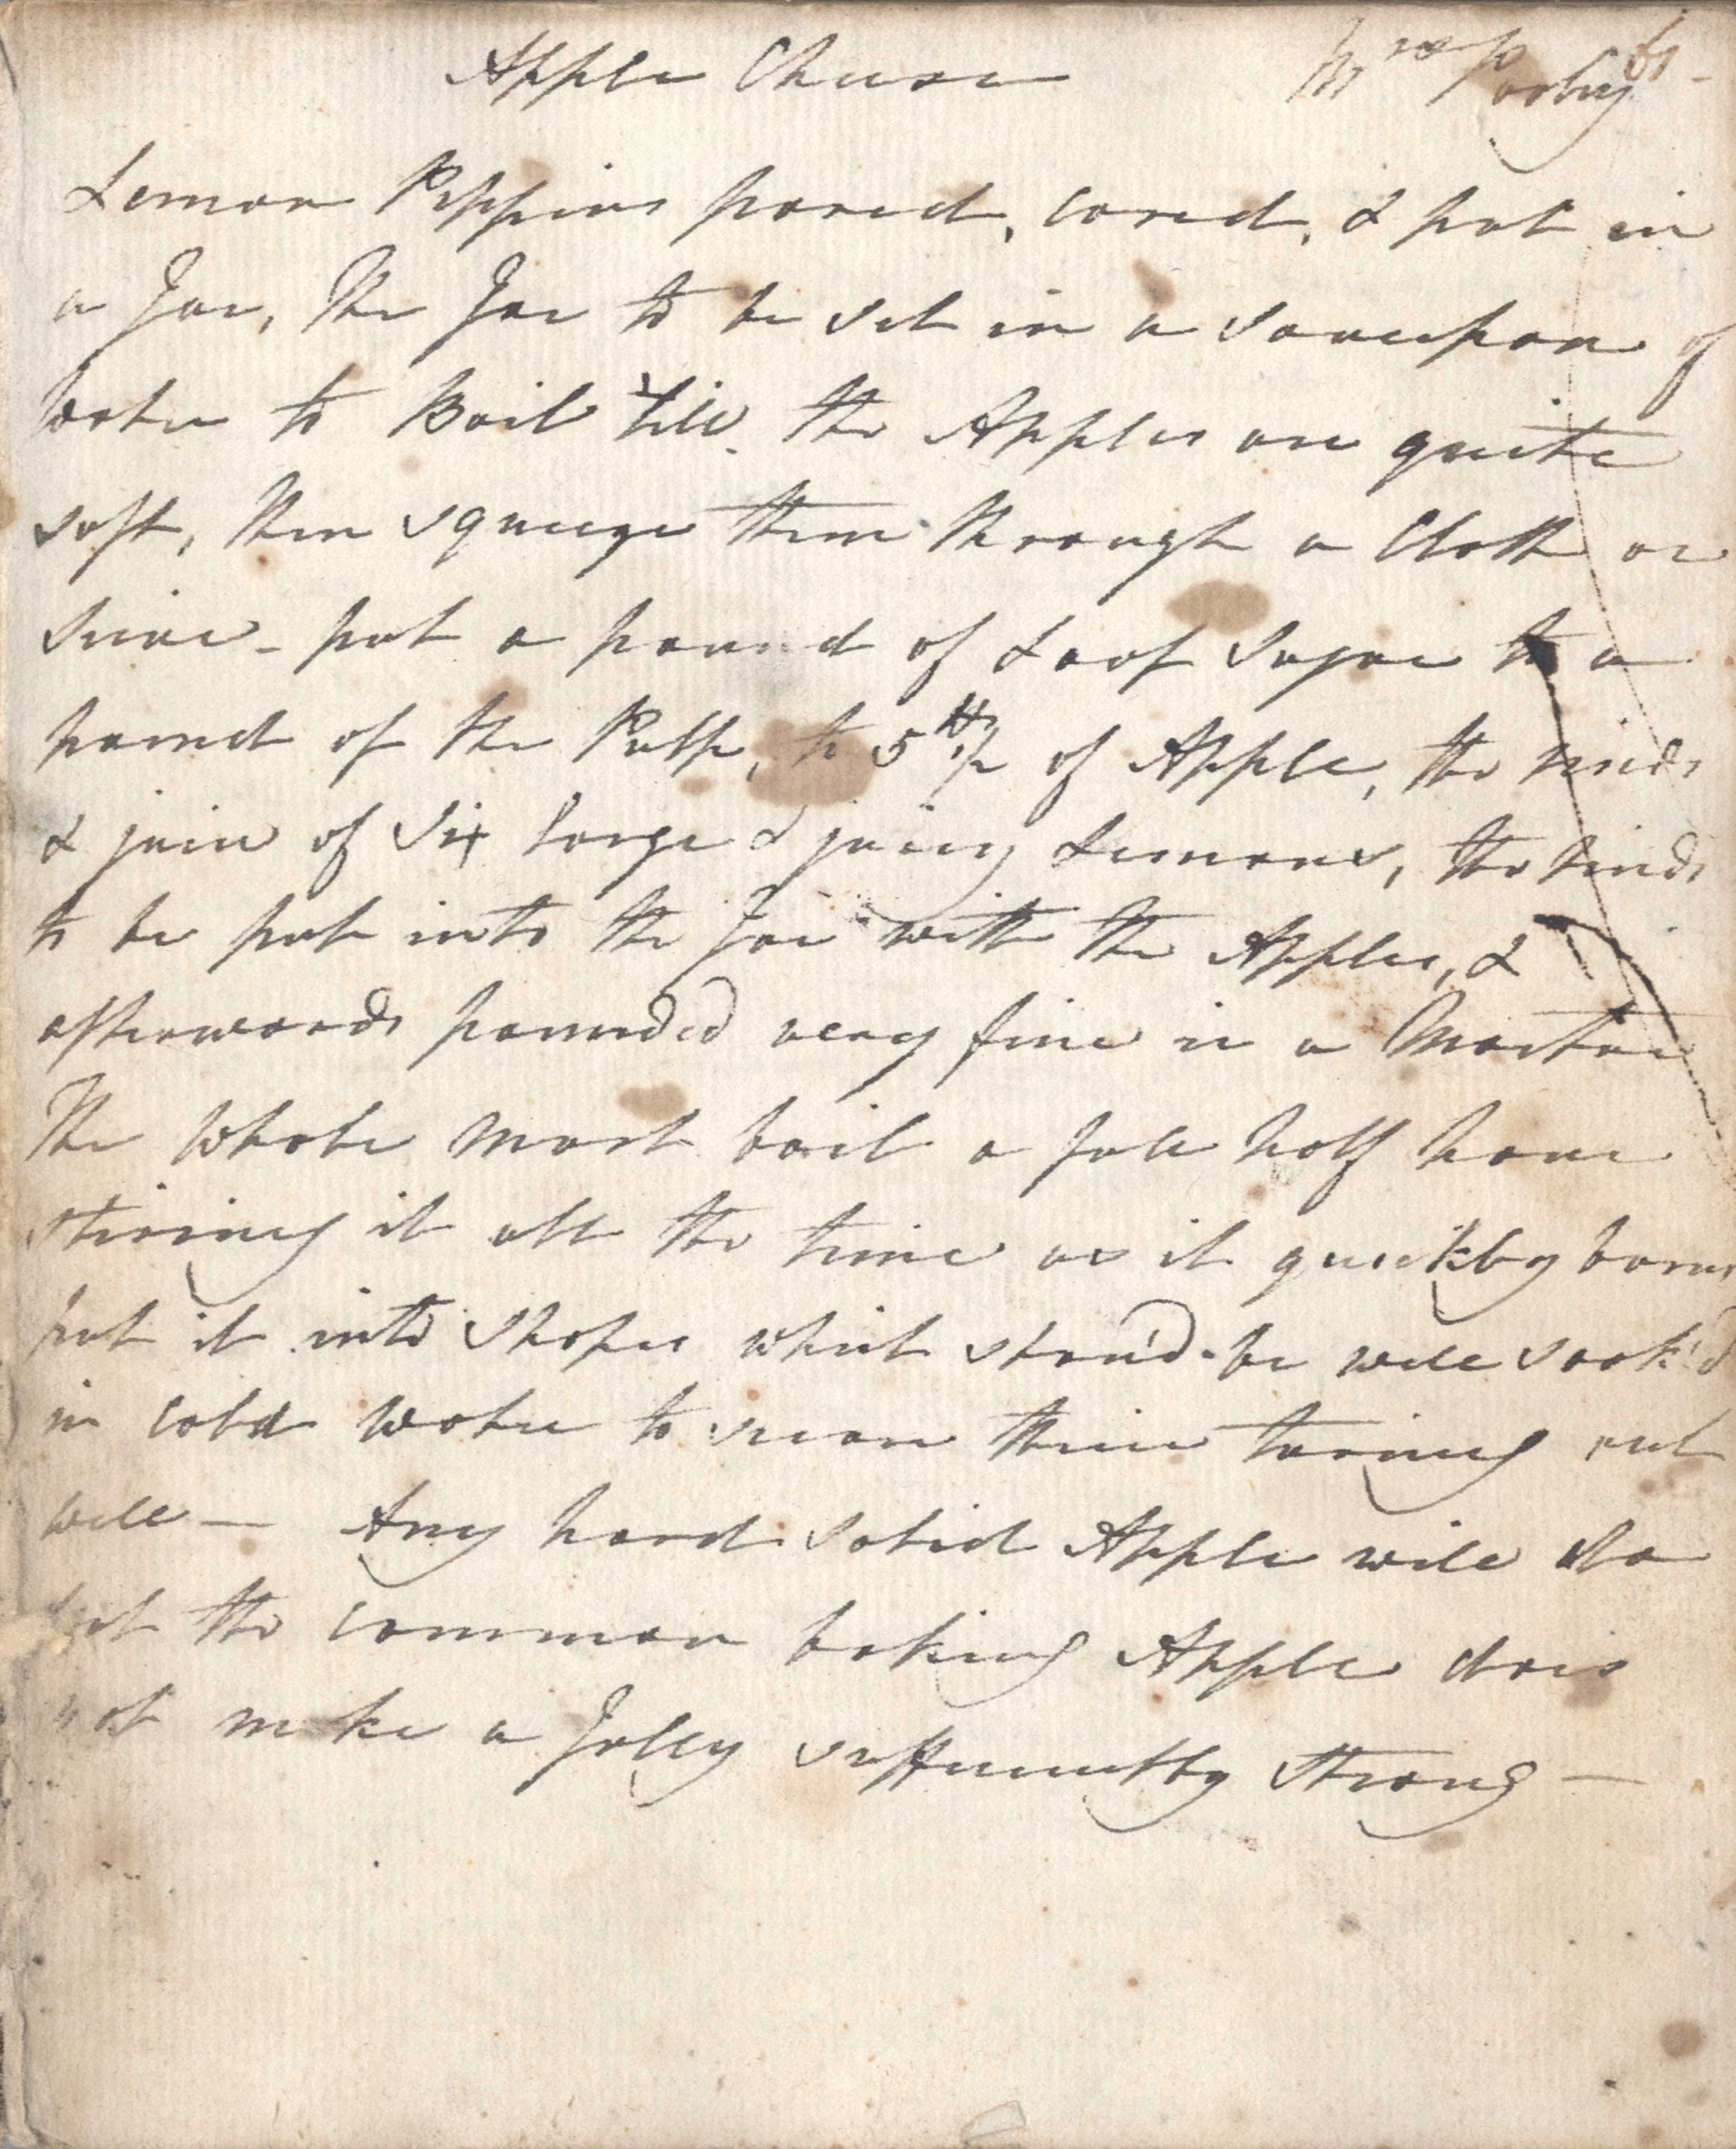 Apple Cheese Mrs
Lemon Peppins pared, cored, & put in
a Jar, the Jar to be set in a saucepan of
water to Boil till the Apples are quite
soft, then squeeze them through a Cloth or
Seive - put a pound of Loaf Sugar to a
pound of the Pulp, to 5 lb of Apple, the rinds
& juice of Six large & juicy Lemons, the rinds
to be put into the Jar with the Apples, &
afterwards pounded very fine in a Mortar
The whole must boil a full half hour
stiring it all the time as it quickly burns
put it into shapes which shou'd be well soak'd
in cold water to secure their turning out
well — Any hard solid Apple will do
but the common baking Apple does
not make a Jelly sufficiently strong —